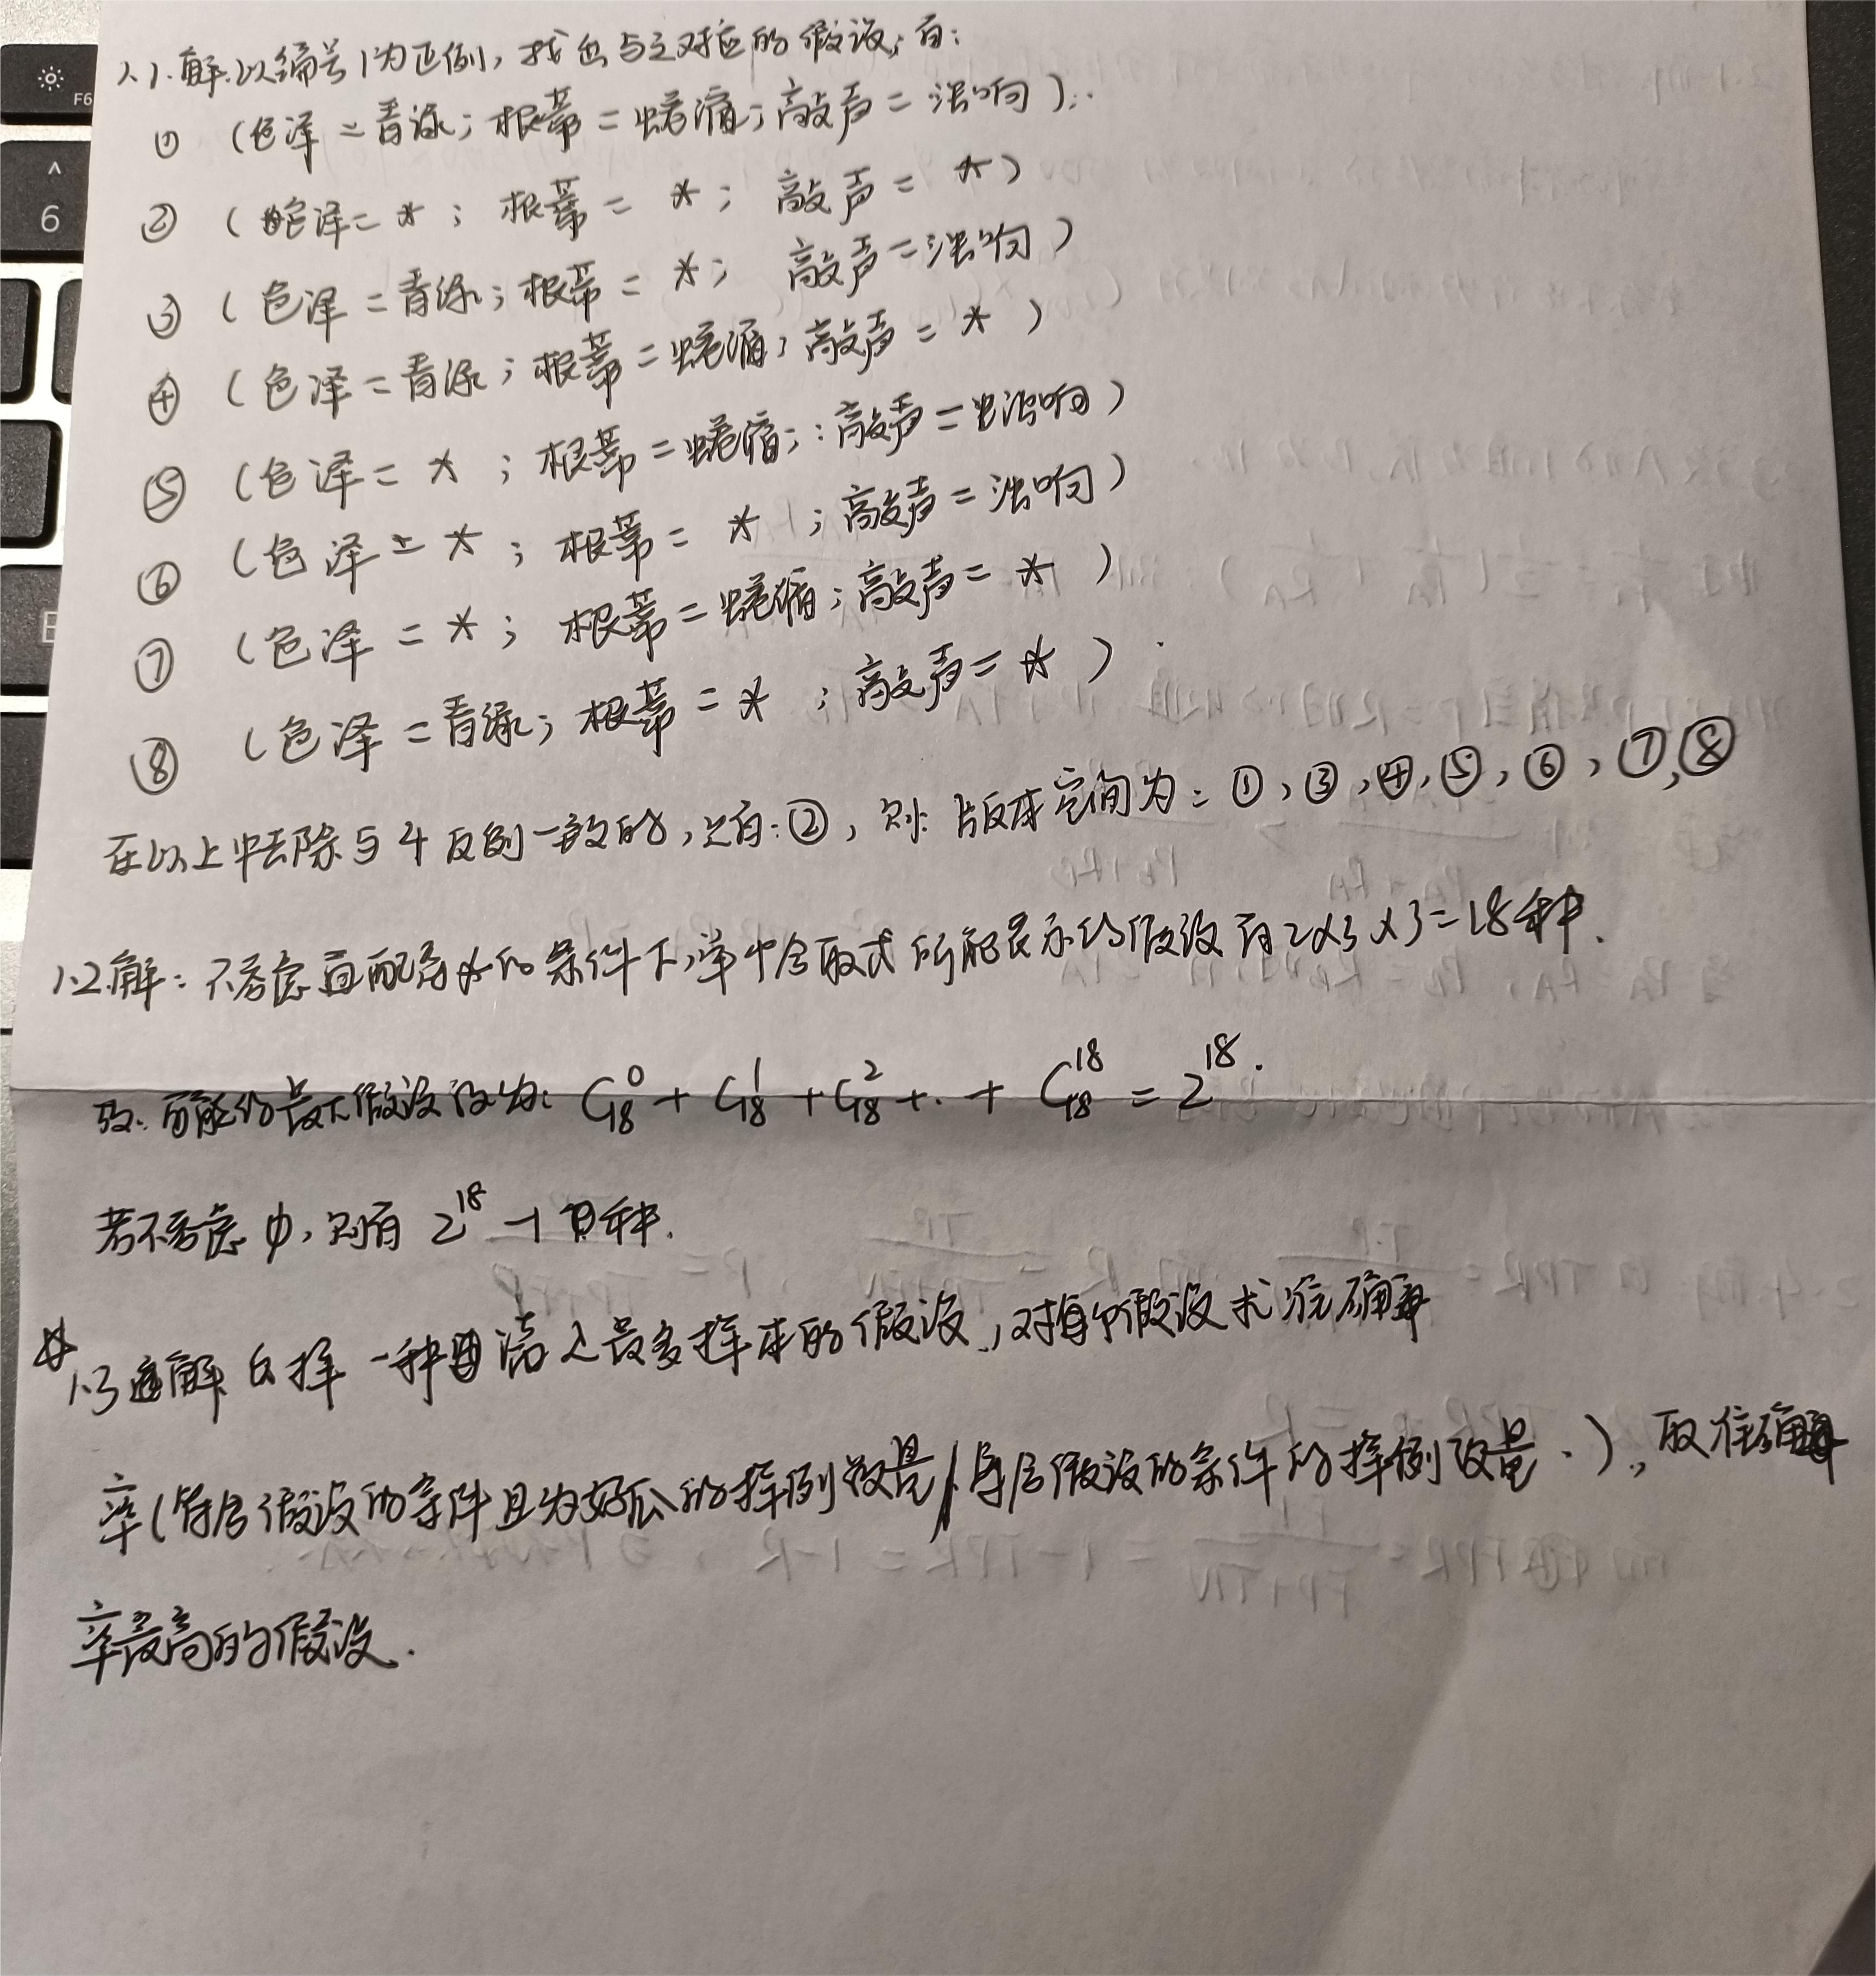 1.1.解.以编号1为正例,找出与之对应的假设,有:
① (色泽=青绿;根蒂=蜷缩;敲声=浊响);
② (色泽=*;根蒂=*;敲声=*)
③ (色泽=青绿;根蒂=*;敲声=浊响)
④ (色泽=青绿;根蒂=蜷缩;敲声=*)
⑤ (色泽=*;根蒂=蜷缩;敲声=浊响)
⑥ (色泽=*;根蒂=*;敲声=浊响)
⑦ (色泽=*;根蒂=蜷缩;敲声=*)
⑧ (色泽=青绿;根蒂=*;敲声=*)
在以上中去除与4反例一致的,只有:②,则:版本空间为:①,③,④,⑤,⑥,⑦,⑧
1.2.解:不考虑通配符*的条件下,单个合取式所能表示的假设有2×3×3=18种.
故:可能的最大假设设为: C₁₈⁰+C₁₈¹+C₁₈²+..+C₁₈¹⁸=2¹⁸.
若不考虑φ,则有2¹⁸-1种.
1.3 解 选择一种满足最多样本的假设,对每个假设求准确
率(符合假设的条件且为好瓜的样例数量/符合假设的条件的样例数量.),取准确
率最高的假设.
F6
6